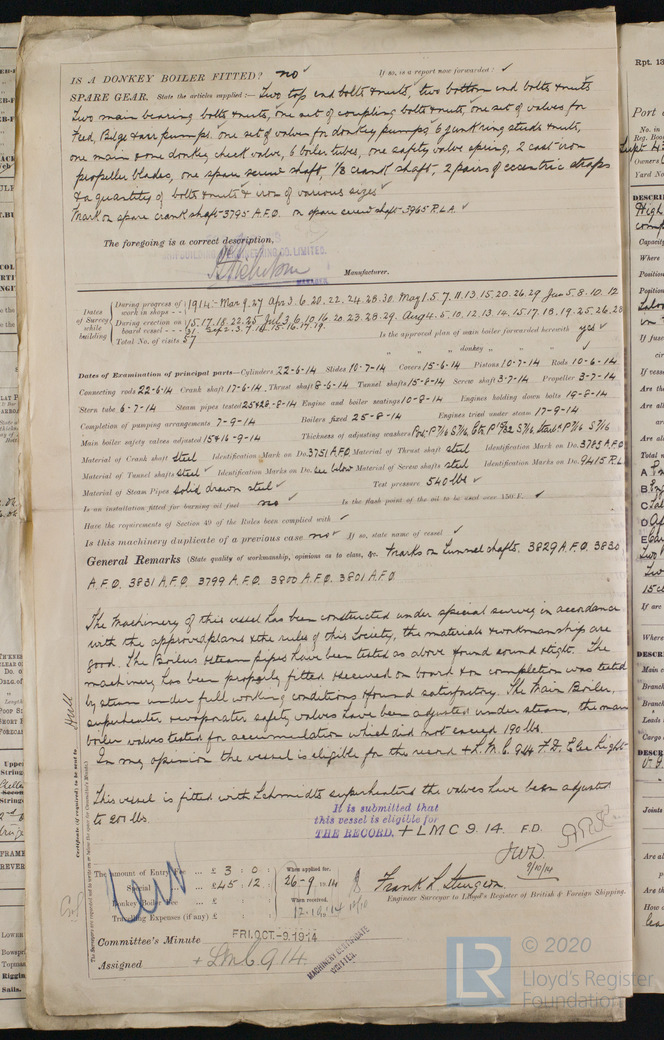 IS A DONKEY BOILER FITTED? no If so, is a report now forwarded?
SPARE GEAR. State the articles supplied:— Two top end bolts & nuts, two bottom end bolts & nuts
Two main bearing bolts & nuts, one set of coupling bolts & nuts, one set of valves for
Feed, Bilge & air pumps, one set of valves for donkey pumps, 6 junk ring studs & nuts,
one main & one donkey check valve, 6 boiler tubes, one safety valve spring, 2 cast iron
propeller blades, one spare screw shaft, 1/3 crank shaft, 2 pairs of eccentric straps
& a quantity of bolts & nuts & iron of various sizes
Mark on spare crank shaft 3795 A.F.O. on spare screw shaft 3965 R.L.A.
The foregoing is a correct description,
Manufacturer.
Dates of Survey while building
During progress of work in shops - - 1914:- Mar 9. 27 Apr 3. 6. 20. 22. 24. 28. 30. May 1. 5. 7. 11. 13. 15. 20. 26. 29 Jun 5. 8. 10. 12
During erection on board vessel - - - 15. 17. 18. 22. 25 Jul 3. 6. 10. 16. 20. 23. 28. 29. Aug 4. 5. 10. 12. 13. 14. 15. 17. 18. 19. 25. 26. 28
31 Sep 2. 3. 7. 14. 15. 16. 17. 19.
Total No. of visits 57 Is the approved plan of main boiler forwarded herewith yes
" " " donkey " "
Dates of Examination of principal parts—Cylinders 22-6-14 Slides 10-7-14 Covers 15-6-14 Pistons 10-7-14 Rods 10-6-14
Connecting rods 22-6-14 Crank shaft 17-6-14 Thrust shaft 8-6-14 Tunnel shafts 15-8-14 Screw shaft 3-7-14 Propeller 3-7-14
Stern tube 6-7-14 Steam pipes tested 25&28-8-14 Engine and boiler seatings 10-8-14 Engines holding down bolts 19-8-14
Completion of pumping arrangements 7-9-14 Boilers fixed 25-8-14 Engines tried under steam 17-9-14
Main boiler safety valves adjusted 15&16-9-14 Thickness of adjusting washers
Material of Crank shaft Steel Identification Mark on Do. 3751 A.F.O. Material of Thrust shaft steel Identification Mark on Do. 3785 A.F.O
Material of Tunnel shafts Steel Identification Marks on Do. see below Material of Screw shafts steel Identification Marks on Do. 9415 R.L
Material of Steam Pipes Solid drawn steel Test pressure 540 lbs
Is an installation fitted for burning oil fuel no Is the flash point of the oil to be used over 150°F.
Have the requirements of Section 49 of the Rules been complied with
Is this machinery duplicate of a previous case no If so, state name of vessel
General Remarks (State quality of workmanship, opinions as to class, &c. Marks on tunnel shafts. 3829 A.F.O. 3830
A.F.O. 3831 A.F.O. 3799 A.F.O. 3800 A.F.O. 3801 A.F.O
The Machinery of this vessel has been constructed under special survey in accordance
with the approved plans & the rules of this Society, the materials & workmanship are
good. The Boilers & steam pipes have been tested as above & found sound & tight. The
machinery has been properly fitted & secured on board & on completion was tested
by steam under full working conditions & found satisfactory. The Main Boiler,
superheater & evaporator safety valves have been adjusted under steam, the main
boiler valves tested for accumulation which did not exceed 190 lbs.
In my opinion the vessel is eligible for the record + L.M.C. 9.14 F.D. Elec Light
This vessel is fitted with Schmidts superheaters the valves have been adjusted
to 201 lbs.
It is submitted that
this vessel is eligible for
THE RECORD. + LMC 9.14. F.D.
JWD
9/10/14
Certificate (if required) to be sent to Hull
The amount of Entry Fee ... £ 3 : 0 : When applied for,
Special ... £ 45 . 12 : 26-9-1914
Donkey Boiler Fee ... £ : : When received,
Travelling Expenses (if any) £ : :
Frank L. Sturgeon
Engineer Surveyor to Lloyd's Register of British & Foreign Shipping.
Committee's Minute FRI. OCT. -9. 1914
Assigned + LMC 9.14
MACHINERY CERTIFICATE
WRITTEN.
© 2020
Lloyd's Register
Foundation
LR